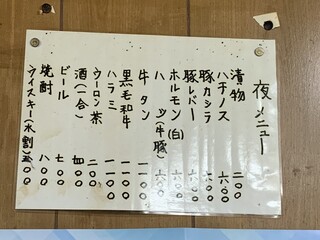 夜メニュー
漬物 二〇〇
ハチノス 六〇〇
豚カシラ 六〇〇
豚レバー 六〇〇
ホルモン(白) 六〇〇
ハツ(牛豚) 六〇〇
牛タン 一一〇〇
黒毛和牛 一一〇〇
ハラミ 一一〇〇
ウーロン茶 二〇〇
酒(一合) 四〇〇
ビール 七〇〇
焼酎 八〇〇
ウイスキー(水割)